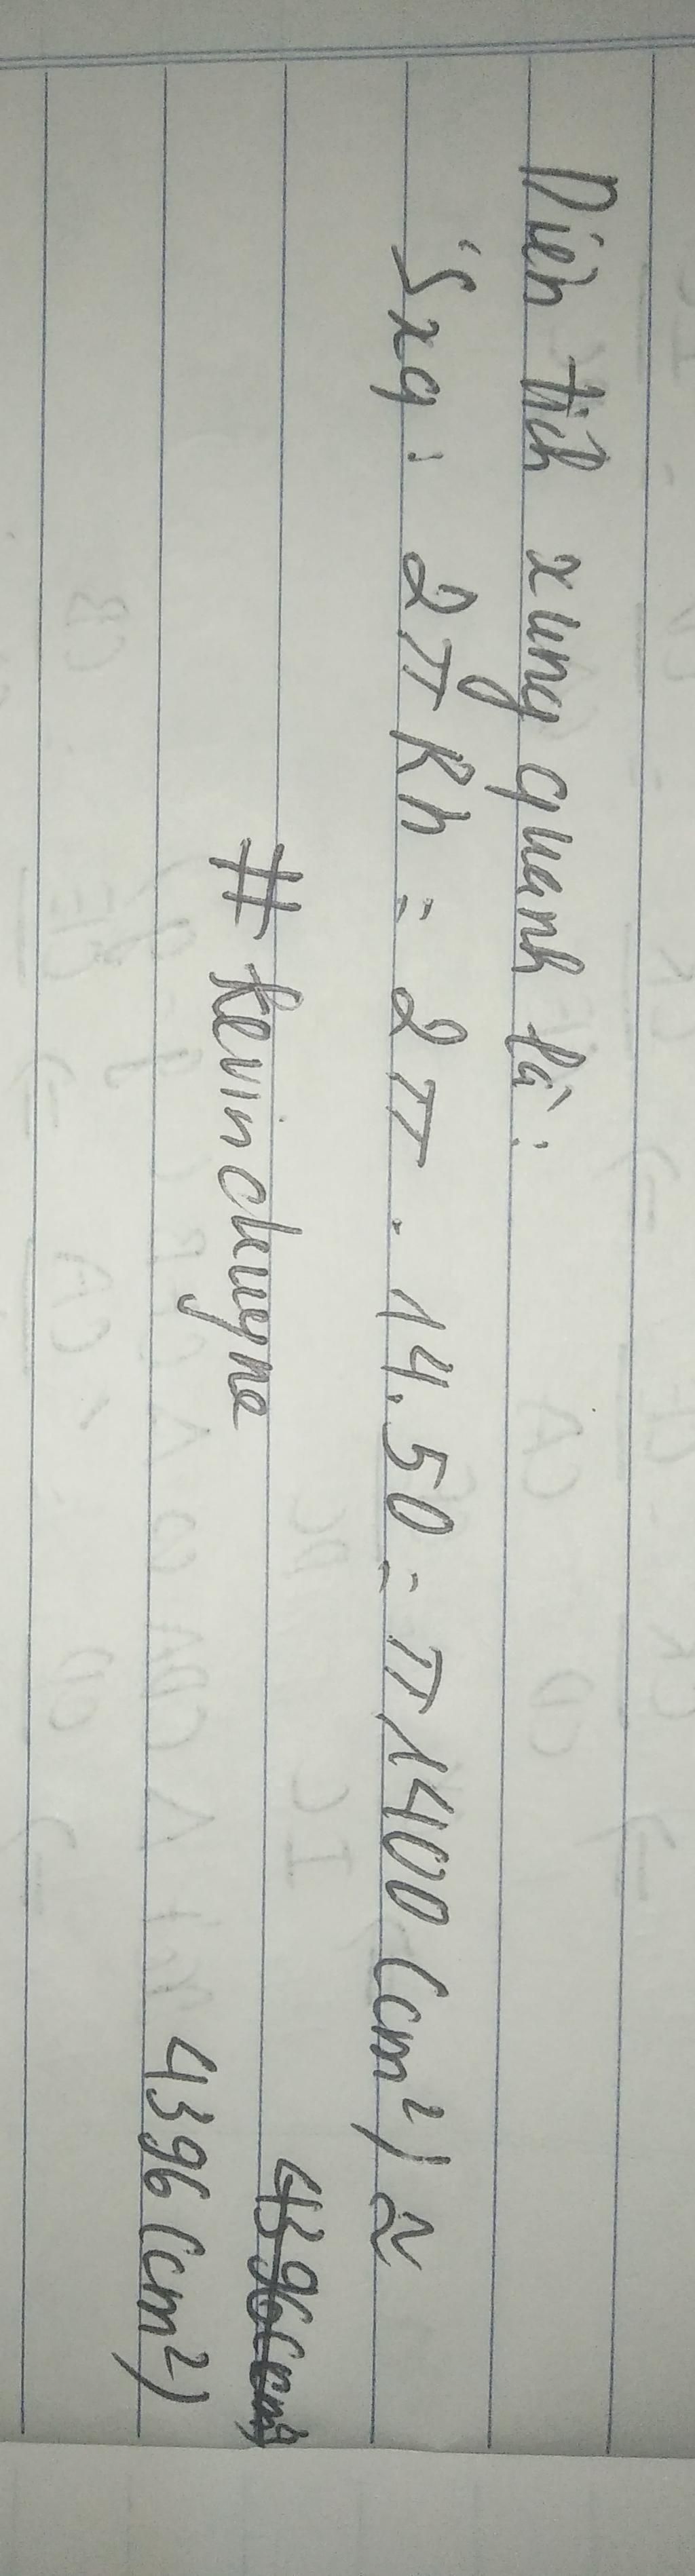 Diện tích xung quanh là:
Sxq = 2πRh = 2π . 14.50 = π1400 (cm²) ≈
4396 (cm²)
4396 (cm²)